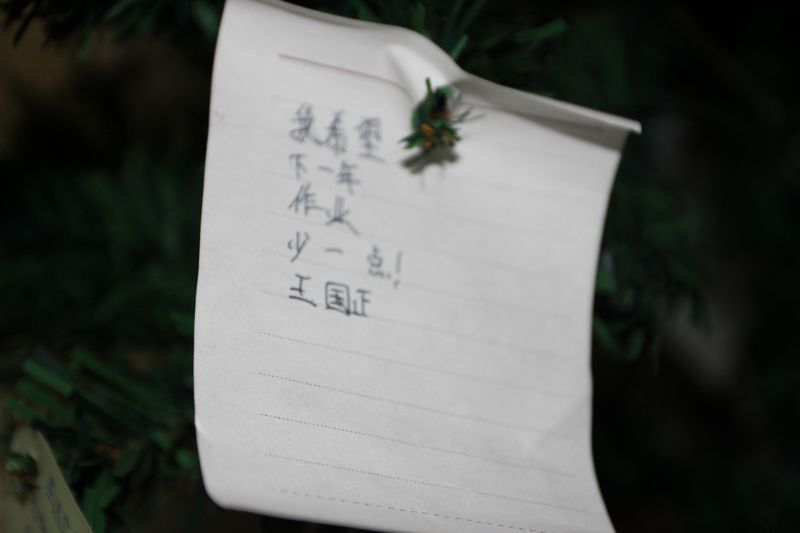 我希望
下一年
作业
少一点!
王国正